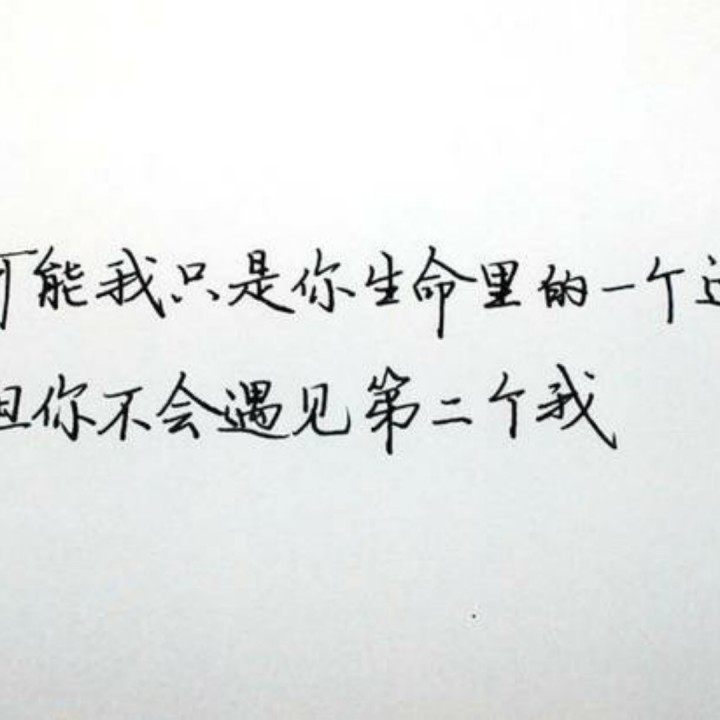 可能我只是你生命里的一个过
但你不会遇见第二个我